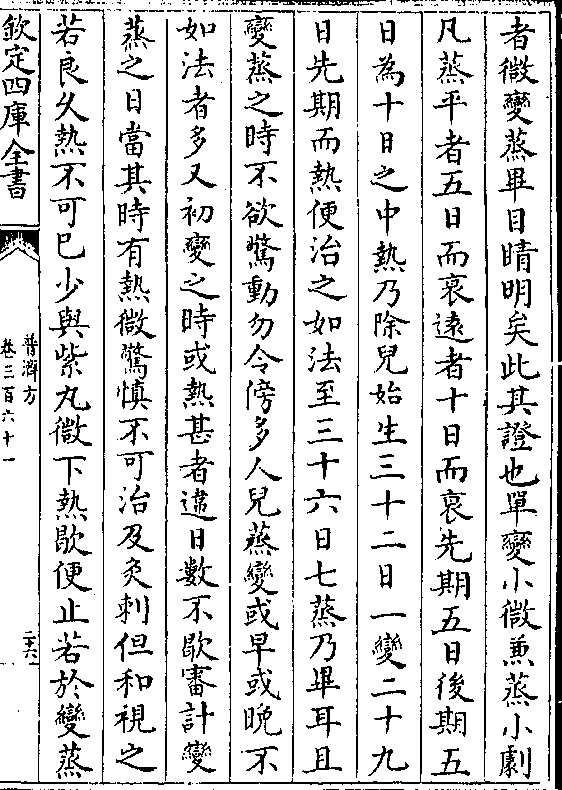 者微變蒸畢目睛明矣此其證也單變小微兼蒸小劇
凡蒸平者五日而衰遠者十日而衰先期五日後期五
日為十日之中熱乃除兒始生三十二日一變二十九
日先期而熱便治之如法至三十六日七蒸乃畢耳且
變蒸之時不欲驚動勿令傍多人兒蒸變或早或晚不
如法者多又初變之時或熱甚者違日數不歇審計變
蒸之日當其時有熱微驚慎不可治及灸刺但和視之
若良久熱不可已少與紫丸微下熱歇便止若於變蒸
欽定四庫全書
普濟方
卷三百六十一
二六